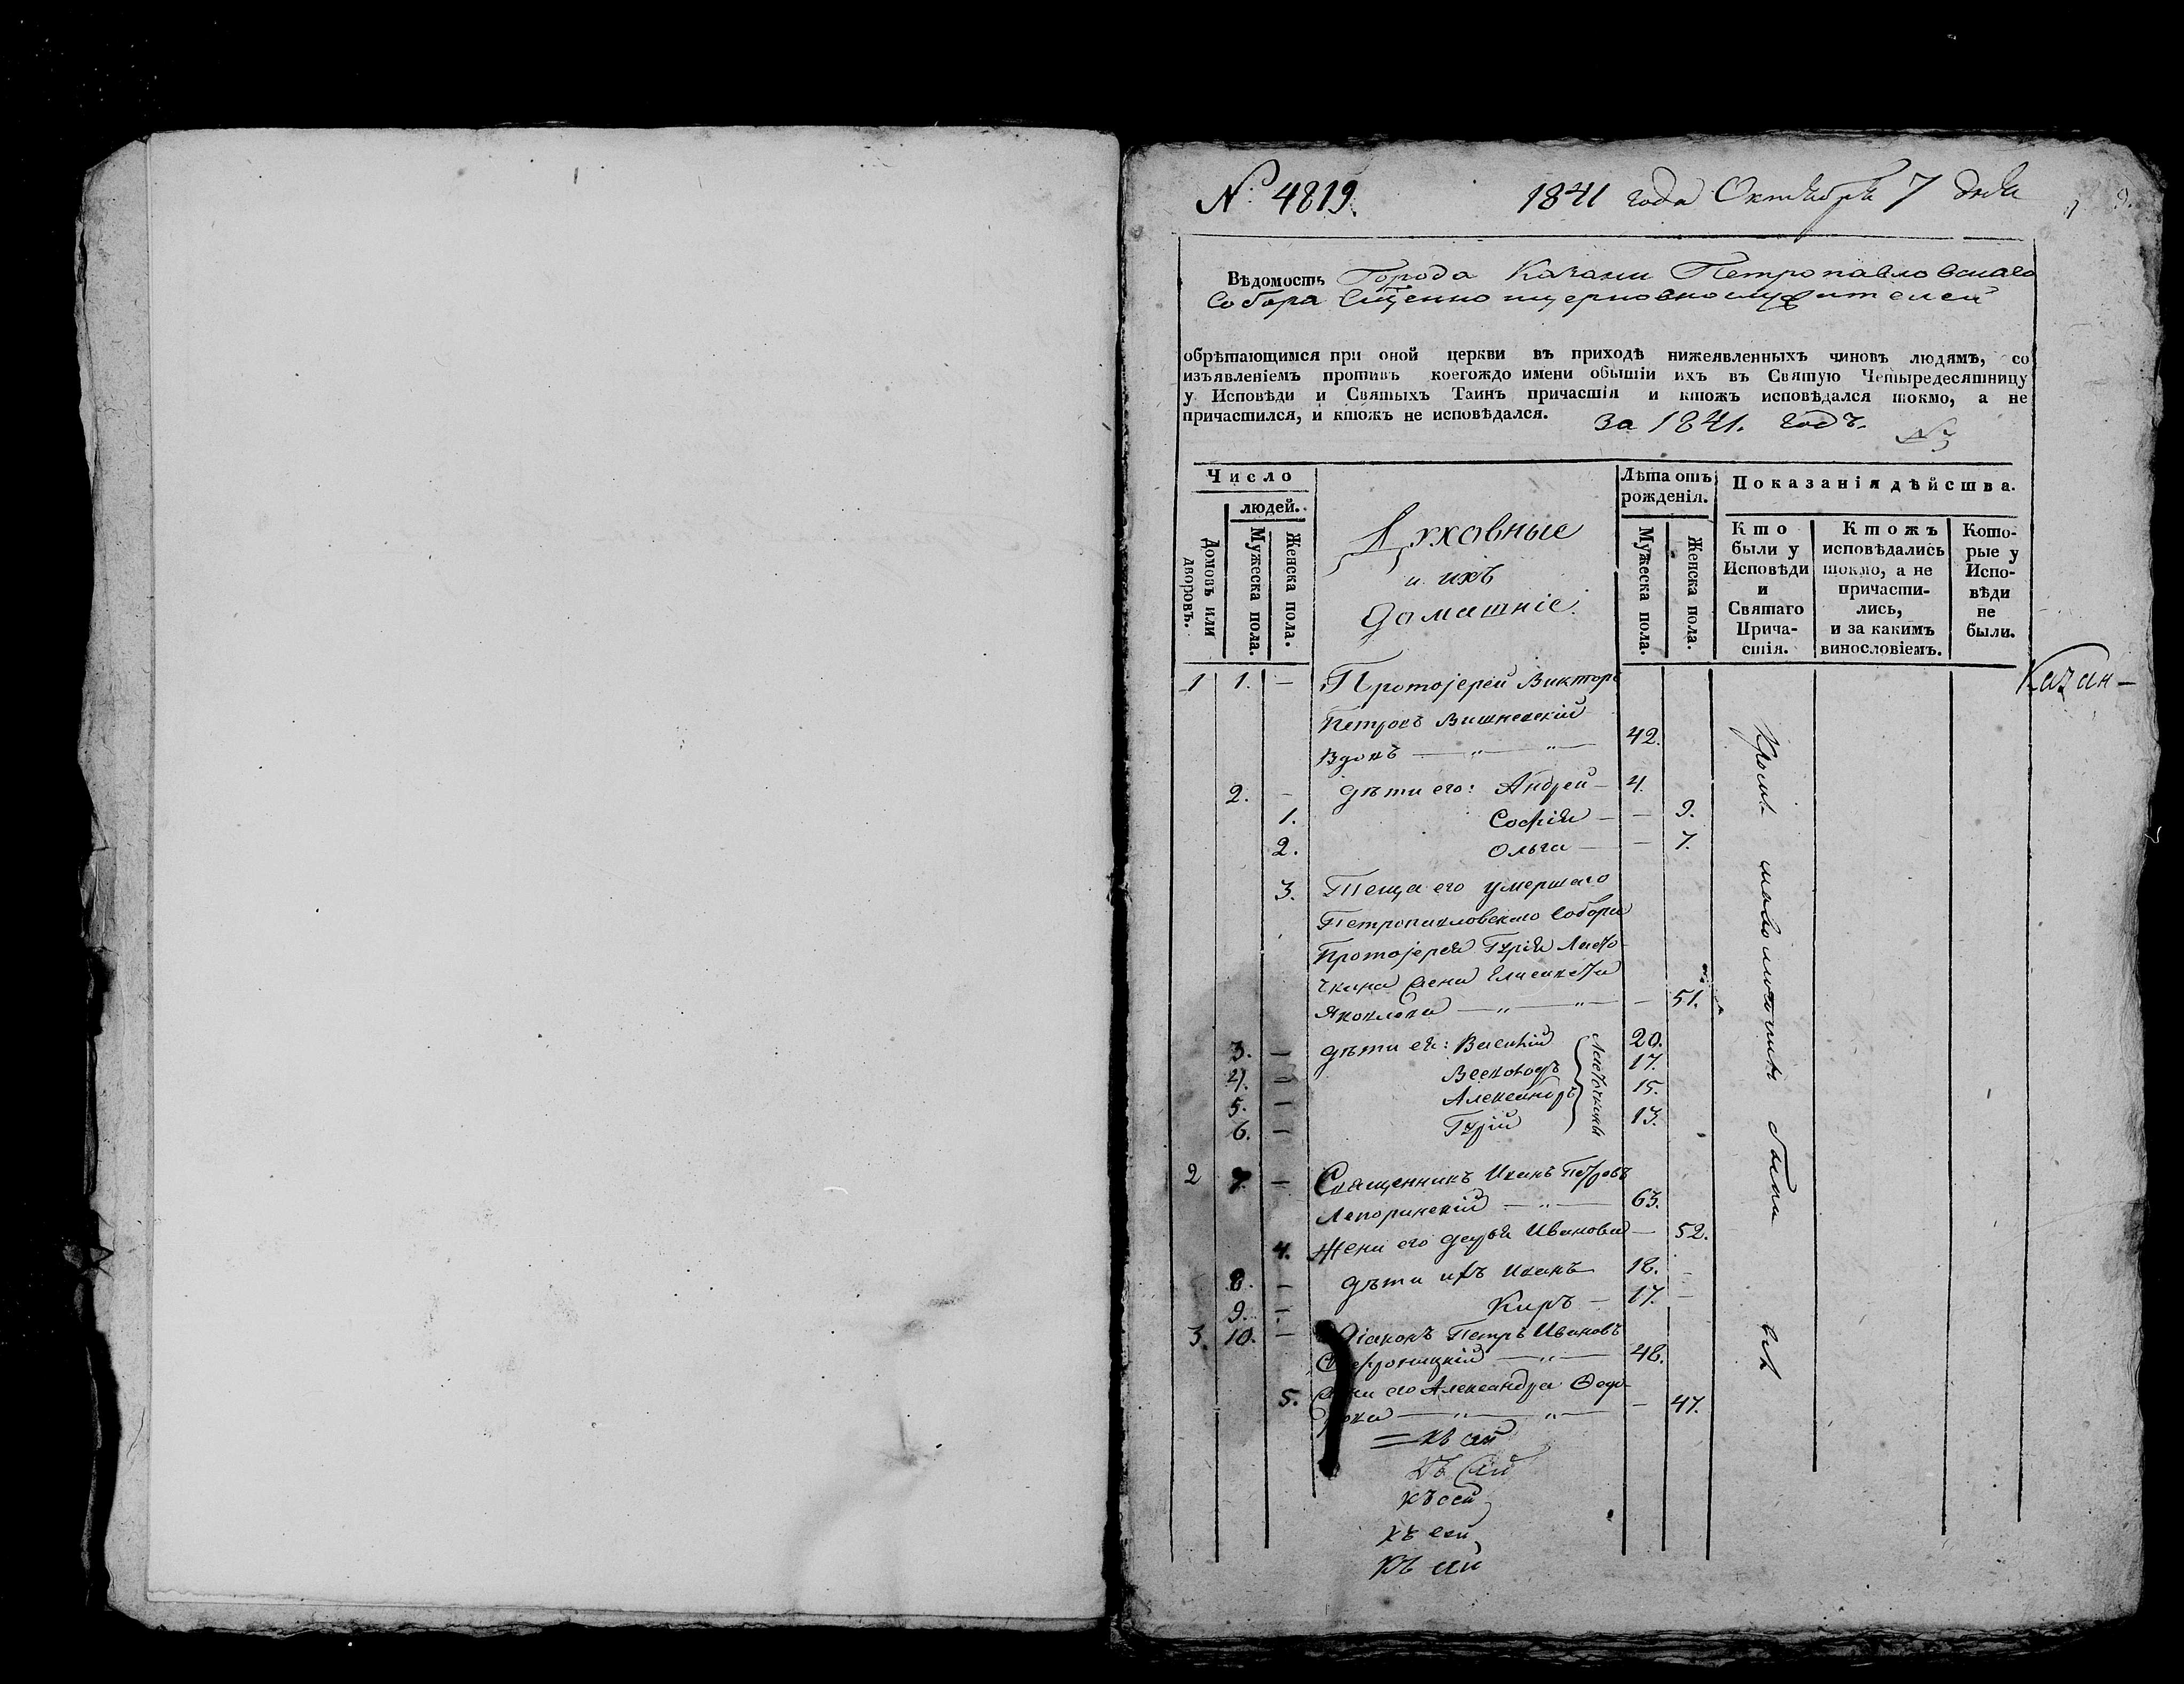 № 4819. 1841 года Октября 7 дня
Вѣдомость Города Казани Петропавловскаго
Собора Сщенно и церковнослужителей
обрѣтающимся при оной церкви въ приходѣ нижеявленныхъ чиновъ людямъ, со
изъявленіемъ противъ коегождо имени обытіи ихъ въ Святую Четыредесятницу
у Исповѣди и Святыхъ Таинъ причастія и ктожъ исповѣдался токмо, а не
причастился, и ктожъ не исповѣдался. За 1841. годъ.
Число
людей.
Домовъ или дворовъ.
Мужеска пола.
Женска пола.
Духовные
и ихъ
домашніе.
Лѣта отъ
рожденія.
Мужеска пола.
Женска пола.
Показанія дѣйства.
Кто
были у
Исповѣди
и
Святаго
Прича-
стія.
Ктожъ
исповѣдались
токмо, а не
причасти-
лись,
и за какимъ
винословіемъ.
Кото-
рые у
Испо-
вѣди
не
были.
1 1. — Протоіерей Викторъ
Петровъ Вишневскій
Вдовъ — 42.
2. — дѣти его: Андрей — 4.
1. Софія — — 9.
2. Ольга — — 7.
3. Теща его умершаго
Петропавловскаго Собора
Протоіерея Гурія Ласто-
чкина жена Елисавета
Яковлева — — 51.
3. — дѣти ея: Василій 20.
4. — Всеволодъ 17.
5. — Александръ 15.
6. — Гурій 13.
Ласточкины
2 7. — Священникъ Иванъ Петровъ
Лепоринскій — 63.
4. Жена его Дарья Иванова — 52.
8. — дѣти ихъ Иванъ 18. —
9. — Киръ — 17. —
3. 10. — Діаконъ Петръ Ивановъ
48.
5. жена его Александра Ѳедо-
рова — — 47.
Кромѣ малолѣтнихъ были всѣ
Казан—
къ сей
къ сей
къ сей
къ сей